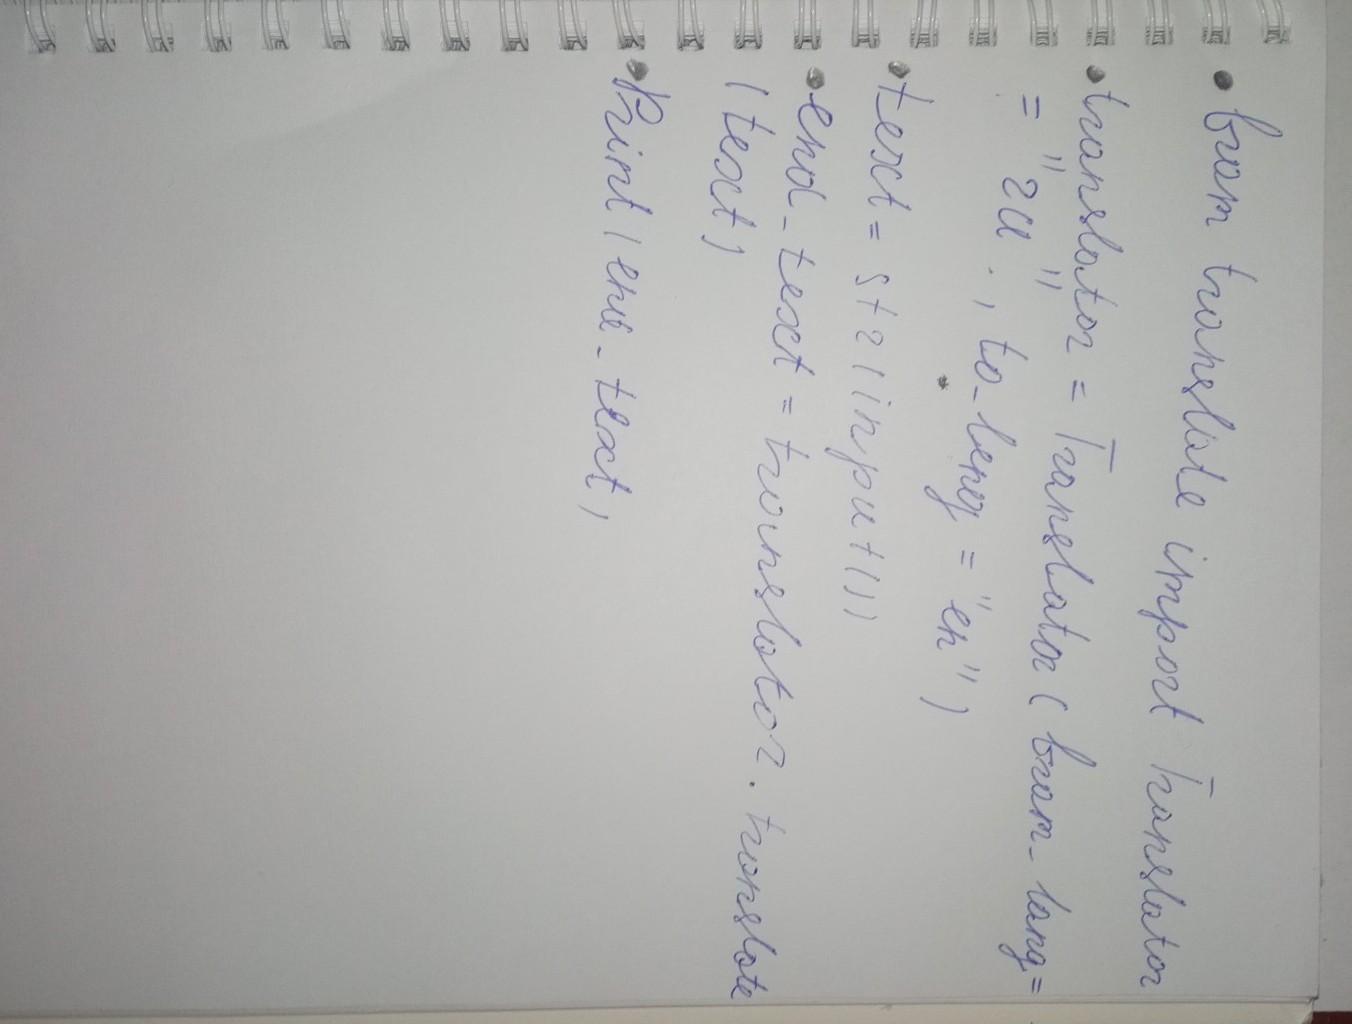 • from translate import Translator
• translator = Translator(from_lang=
= "ru", to_leng = "en")
• text = str(input())
• end_text = translator.translate
(text)
• Print(end_text)